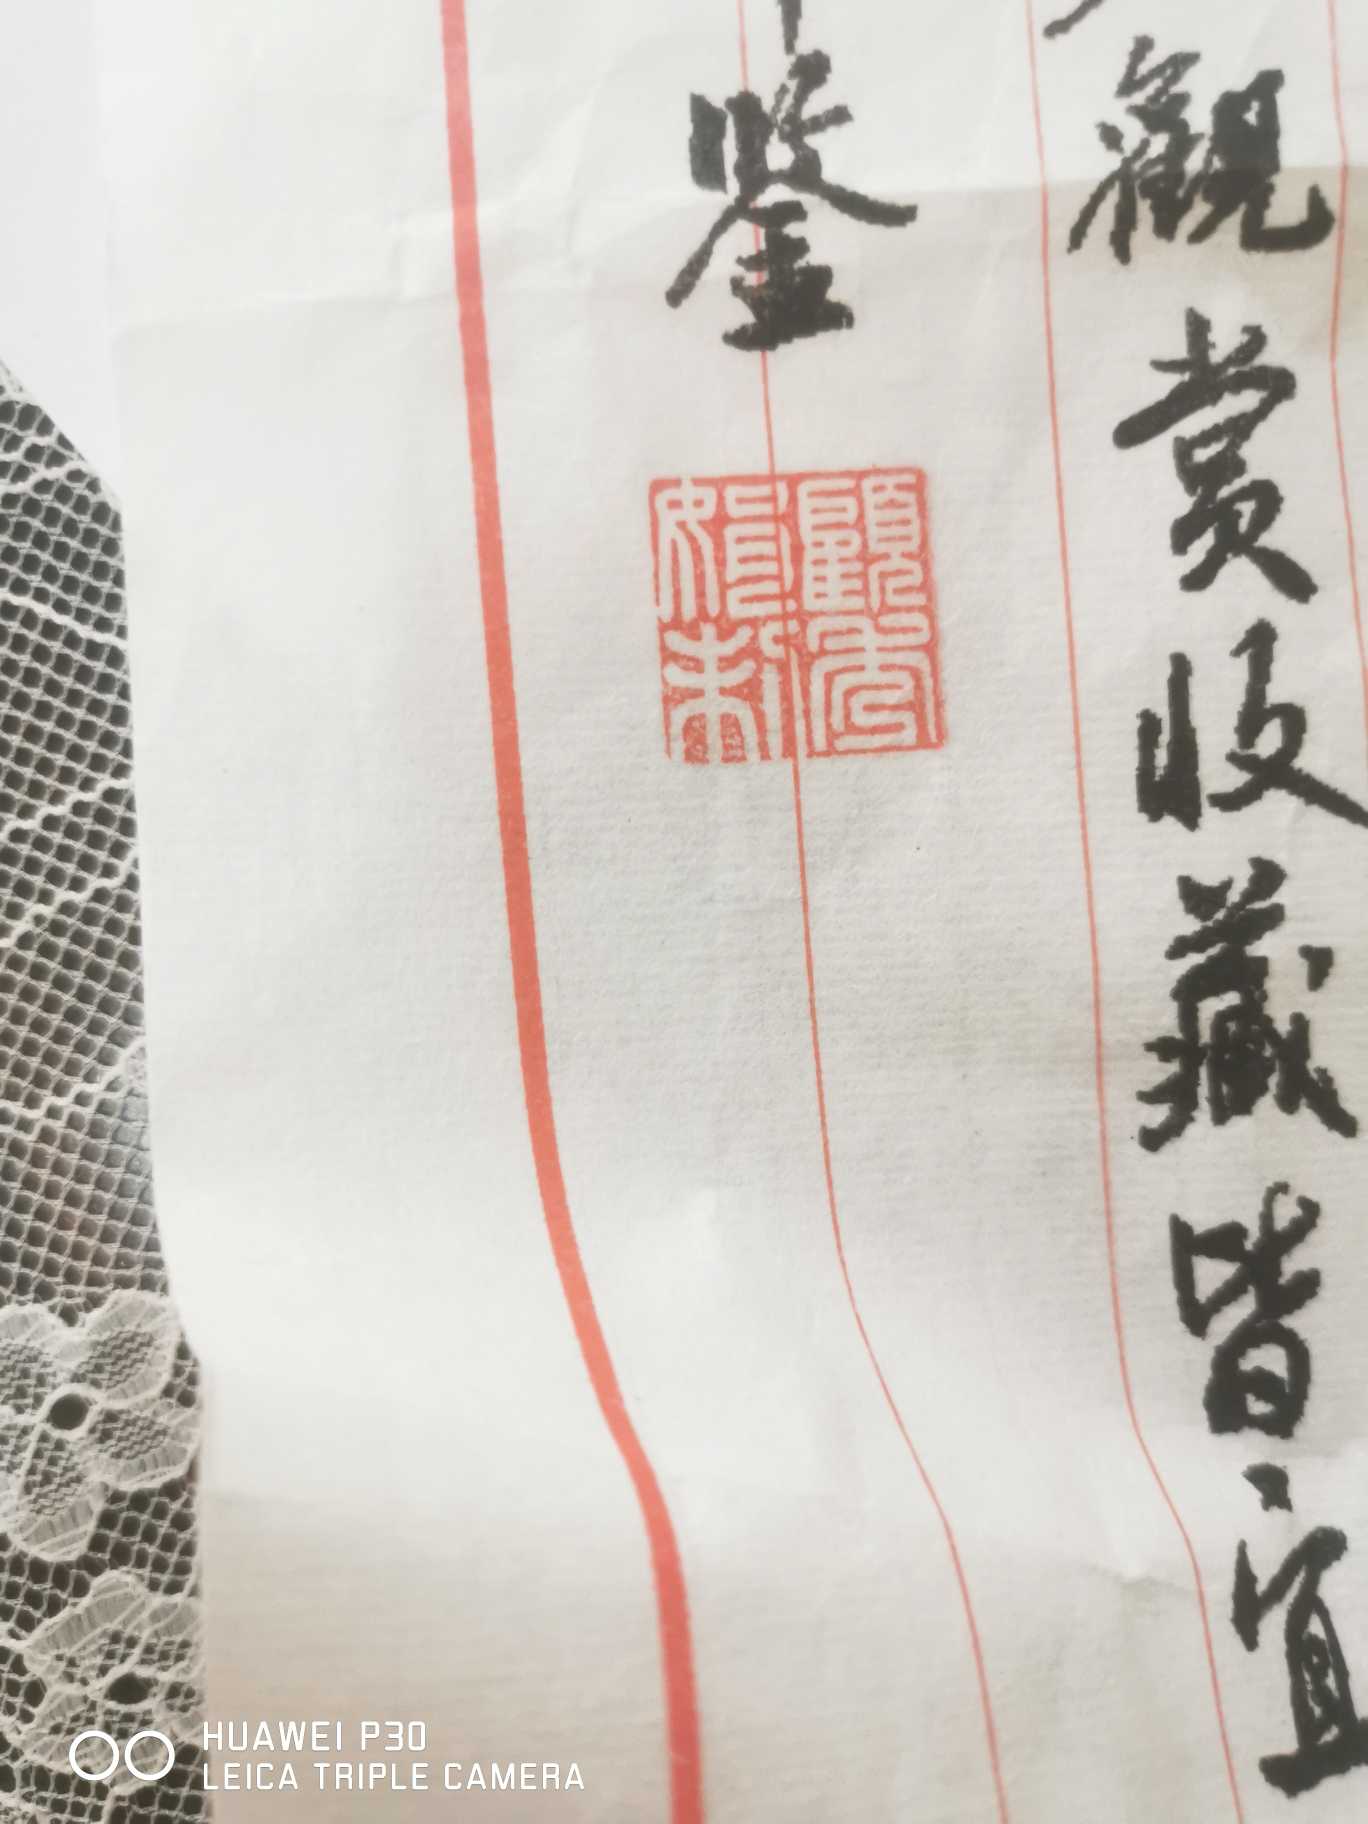 觀賞收藏皆宜
鉴
HUAWEI P30
LEICA TRIPLE CAMERA